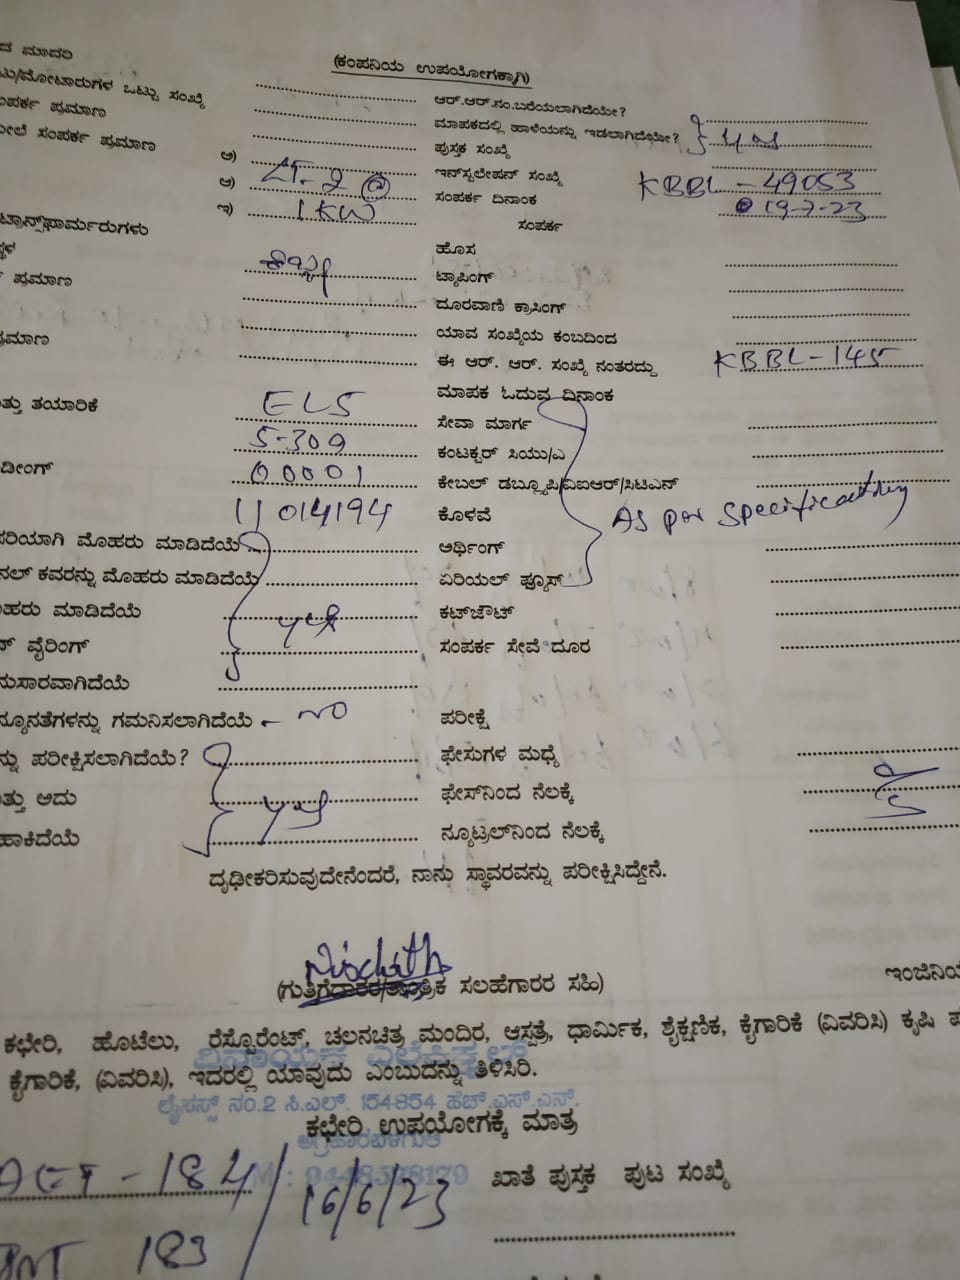 (ಕಂಪನಿಯ ಉಪಯೋಗಕ್ಕಾಗಿ)
ದ ಮಾದರಿ
ಟು/ಮೋಟಾರುಗಳ ಒಟ್ಟು ಸಂಖ್ಯೆ ಆರ್.ಆರ್.ನಂ.ಬರೆಯಲಾಗಿದೆಯೇ?
ಪರ್ಕ ಪ್ರಮಾಣ ಮಾಪಕದಲ್ಲಿ ಹಾಳೆಯನ್ನು ಇಡಲಾಗಿದೆಯೇ?
ಸಂಪರ್ಕ ಪ್ರಮಾಣ ಪುಸ್ತಕ ಸಂಖ್ಯೆ
ಅ) ಇನ್‌ಸ್ಟಲೇಷನ್ ಸಂಖ್ಯೆ KBBL - 49053
ಆ) LT-2 @ ಸಂಪರ್ಕ ದಿನಾಂಕ 19-7-23
ಇ) 1 KW ಸಂಪರ್ಕ
ಟ್ರಾನ್ಸ್‌ಫಾರ್ಮರುಗಳು ಹೊಸ
ಪ್ರಮಾಣ ಟ್ಯಾಪಿಂಗ್
ದೂರವಾಣಿ ಕ್ರಾಸಿಂಗ್
ಯಾವ ಸಂಖ್ಯೆಯ ಕಂಬದಿಂದ
ಈ ಆರ್. ಆರ್. ಸಂಖ್ಯೆ ನಂತರದ್ದು KBBL - 145
ಮಾಪಕ ಓದುವ ದಿನಾಂಕ
ತ್ತು ತಯಾರಿಕೆ ELS ಸೇವಾ ಮಾರ್ಗ
5-30A ಕಂಟಕ್ಟರ್ ಸಿಯು/ಎ
ಡೀಂಗ್ 00001 ಕೇಬಲ್ ಡಬ್ಲ್ಯೂಪಿ/ವಿಐಆರ್/ಸಿಟಿಎನ್
11014194 ಕೊಳವೆ As per
ಸರಿಯಾಗಿ ಮೊಹರು ಮಾಡಿದೆಯೆ ಅರ್ಥಿಂಗ್
ನಲ್ ಕವರನ್ನು ಮೊಹರು ಮಾಡಿದೆಯೆ ಏರಿಯಲ್ ಫ್ಯೂಸ್
ಹರು ಮಾಡಿದೆಯೆ yes ಕಟ್‌ಔಟ್
ವೈರಿಂಗ್ ಸಂಪರ್ಕ ಸೇವೆ ದೂರ
ನುಸಾರವಾಗಿದೆಯೆ
ನ್ಯೂನತೆಗಳನ್ನು ಗಮನಿಸಲಾಗಿದೆಯೆ - no ಪರೀಕ್ಷೆ
ನ್ನು ಪರೀಕ್ಷಿಸಲಾಗಿದೆಯೆ? ಫೇಸುಗಳ ಮಧ್ಯೆ
ತ್ತು ಅದು yes ಫೇಸ್‌ನಿಂದ ನೆಲಕ್ಕೆ
ಹಾಕಿದೆಯೆ ನ್ಯೂಟ್ರಲ್‌ನಿಂದ ನೆಲಕ್ಕೆ
ದೃಢೀಕರಿಸುವುದೇನೆಂದರೆ, ನಾನು ಸ್ಥಾವರವನ್ನು ಪರೀಕ್ಷಿಸಿದ್ದೇನೆ.
(ಗುತ್ತಿಗೆದಾರರ/ತಾಂತ್ರಿಕ ಸಲಹೆಗಾರರ ಸಹಿ) ಇಂಜಿನಿಯ
ಕಛೇರಿ, ಹೊಟೆಲು, ರೆಸ್ಟೊರೆಂಟ್, ಚಲನಚಿತ್ರ ಮಂದಿರ, ಆಸ್ಪತ್ರೆ, ಧಾರ್ಮಿಕ, ಶೈಕ್ಷಣಿಕ, ಕೈಗಾರಿಕೆ (ವಿವರಿಸಿ) ಕೃಷಿ ಪ
ವಿನಾಯಕ ಎಲೆಕ್ಟ್ರಿಕಲ್ಸ್
ಕೈಗಾರಿಕೆ, (ವಿವರಿಸಿ), ಇದರಲ್ಲಿ ಯಾವುದು ಎಂಬುದನ್ನು ತಿಳಿಸಿರಿ.
ಲೈಸನ್ಸ್ ನಂ.2 ಸಿ.ಎಲ್. 154854 ಹೆಚ್.ಎಸ್.ಎನ್.
ಕಛೇರಿ ಉಪಯೋಗಕ್ಕೆ ಮಾತ್ರ
ಖಾತೆ ಪುಸ್ತಕ ಪುಟ ಸಂಖ್ಯೆ
- 184 / 16/6/23
183